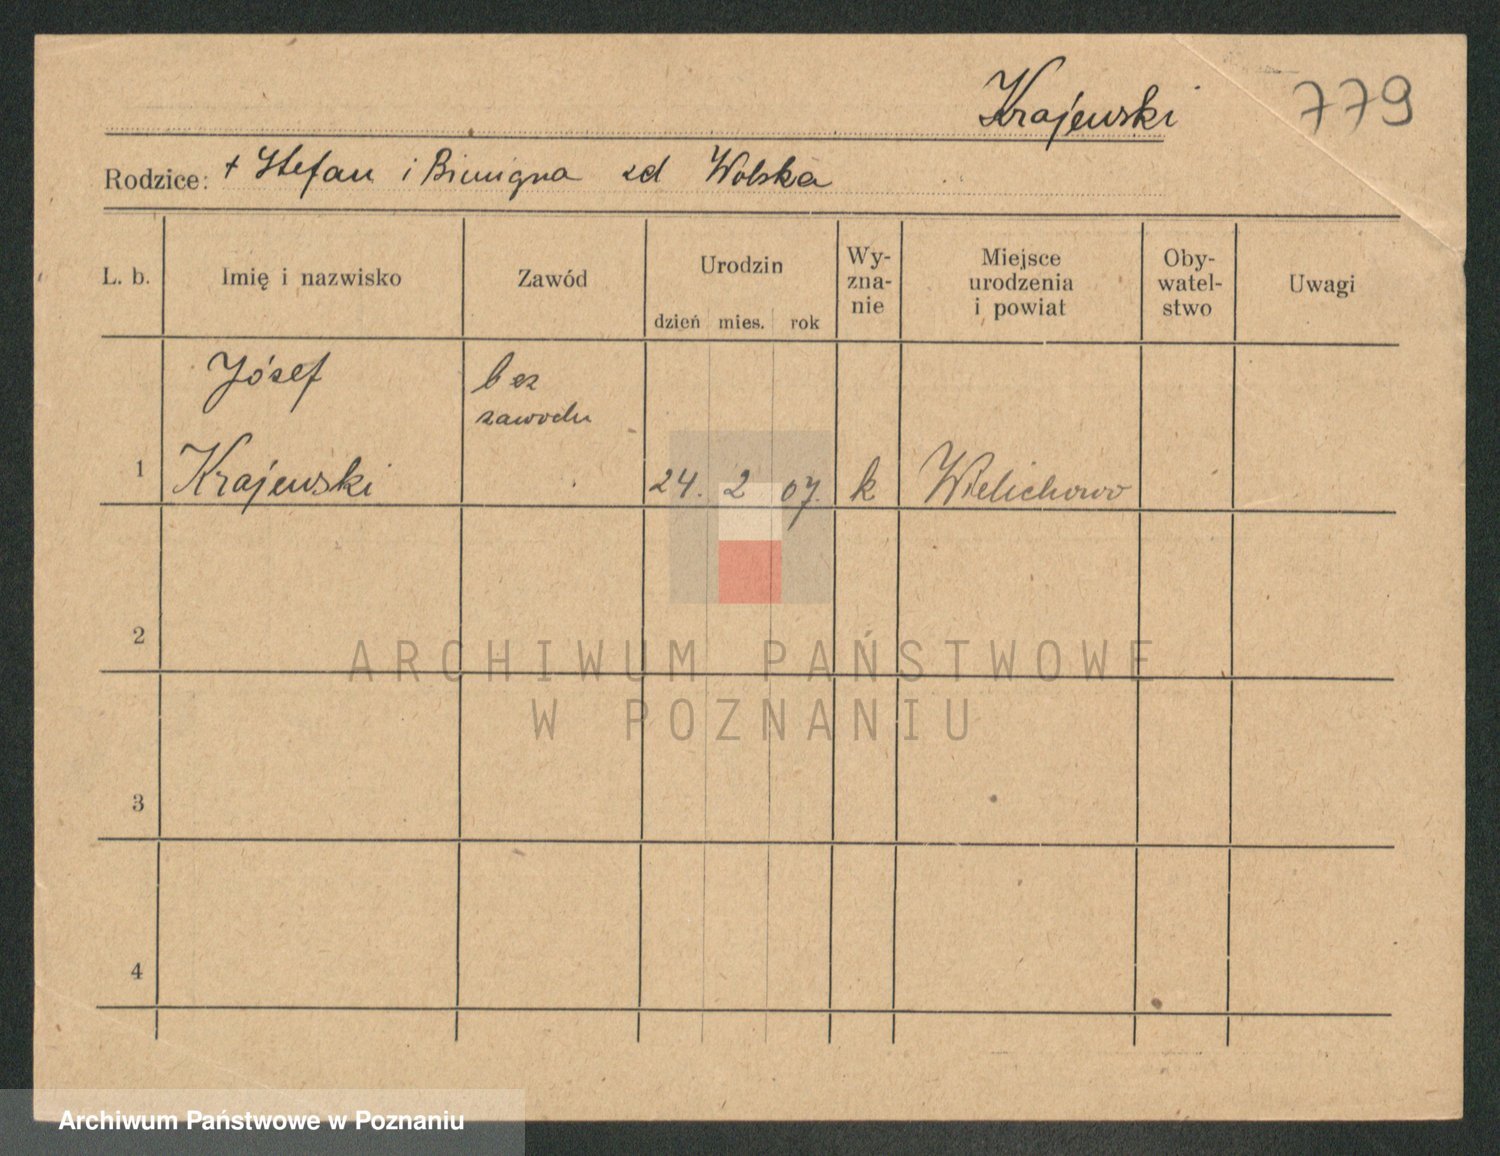 Krajewski 779
Rodzice: + Stefan i Bimigna zd Wolska
L. b. Imię i nazwisko Zawód Urodzin dzień mies. rok Wy-zna-nie Miejsce urodzenia i powiat Oby-watel-stwo Uwagi
Józef bez
zawodu
1 Krajewski 24. 2 07. k Wielichowo
2
ARCHIWUM PAŃSTWOWE
W POZNANIU
3
4
Archiwum Państwowe w Poznaniu